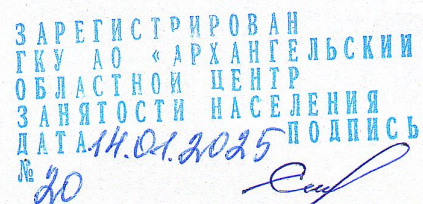 ЗАРЕГИСТРИРОВАН
ГКУ АО «АРХАНГЕЛЬСКИЙ
ОБЛАСТНОЙ ЦЕНТР
ЗАНЯТОСТИ НАСЕЛЕНИЯ
ДАТА 14.01.2025 ПОДПИСЬ
№ 20